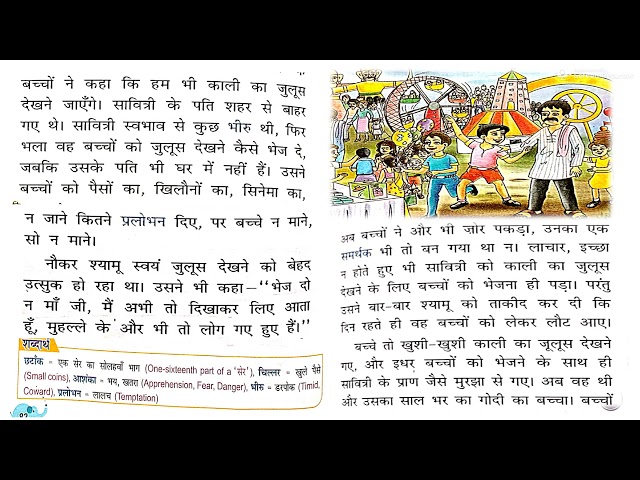 बच्चों ने कहा कि हम भी काली का जुलूस
देखने जाएँगे। सावित्री के पति शहर से बाहर
गए थे। सावित्री स्वभाव से कुछ भीरु थी, फिर
भला वह बच्चों को जुलूस देखने कैसे भेज दे,
जबकि उसके पति भी घर में नहीं हैं। उसने
बच्चों को पैसों का, खिलौनों का, सिनेमा का,
न जाने कितने प्रलोभन दिए, पर बच्चे न माने,
सो न माने।
नौकर श्यामू स्वयं जुलूस देखने को बेहद
उत्सुक हो रहा था। उसने भी कहा–"भेज दो
न माँ जी, मैं अभी तो दिखाकर लिए आता
हूँ, मुहल्ले के और भी तो लोग गए हुए हैं।"
शब्दार्थ
छटाँक = एक सेर का सोलहवाँ भाग (One-sixteenth part of a 'सेर'), चिल्लर = खुले पैसे
(Small coins), आशंका = भय, खतरा (Apprehension, Fear, Danger), भीरु = डरपोक (Timid,
Coward), प्रलोभन = लालच (Temptation)
82
अब बच्चों ने और भी ज़ोर पकड़ा, उनका एक
समर्थक भी तो बन गया था न। लाचार, इच्छा
न होते हुए भी सावित्री को काली का जुलूस
देखने के लिए बच्चों को भेजना ही पड़ा। परंतु
उसने बार-बार श्यामू को ताकीद कर दी कि
दिन रहते ही वह बच्चों को लेकर लौट आए।
बच्चे तो खुशी-खुशी काली का जूलूस देखने
गए, और इधर बच्चों को भेजने के साथ ही
सावित्री के प्राण जैसे मुरझा से गए। अब वह थी
और उसका साल भर का गोदी का बच्चा। बच्चों